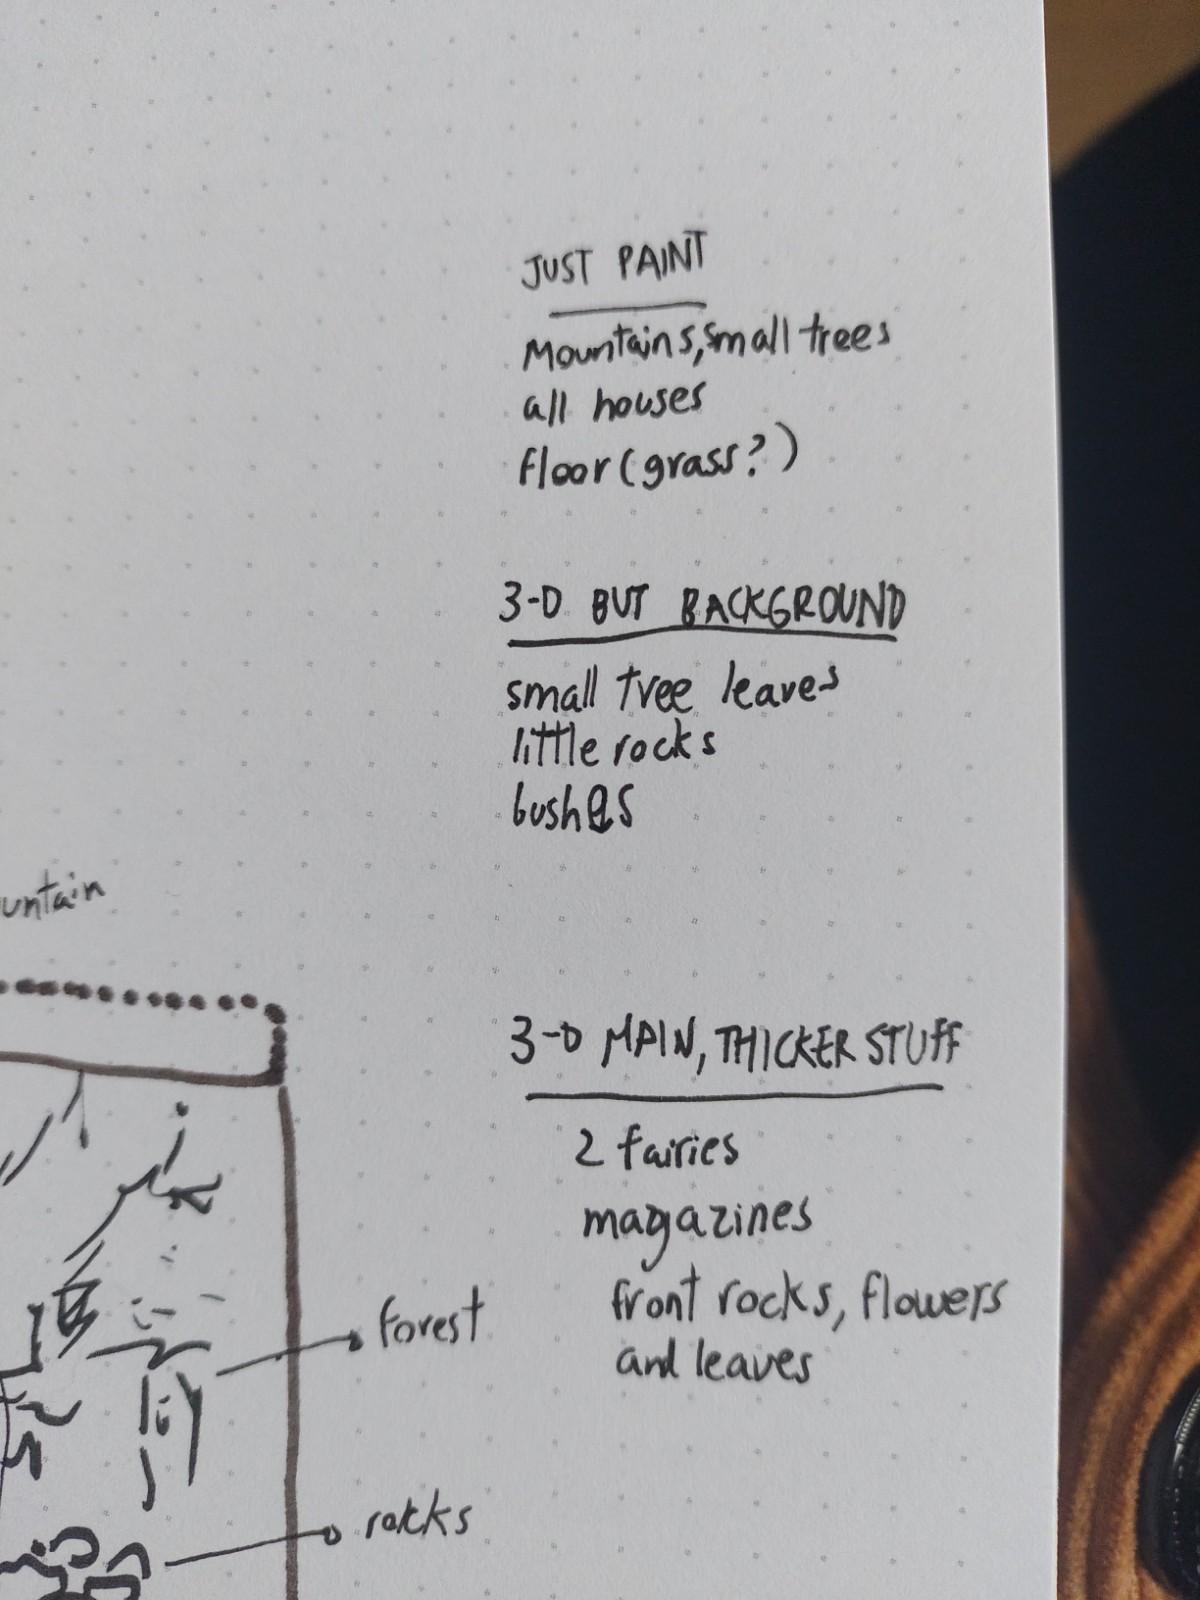 JUST PAINT
Mountains, small trees
all houses
floor (grass?)
3-D BUT BACKGROUND
small tree leaves
little rocks
bushes
untain
3-D MAIN, THICKER STUFF
2 fairies
magazines
front rocks, flowers
and leaves
forest
rocks